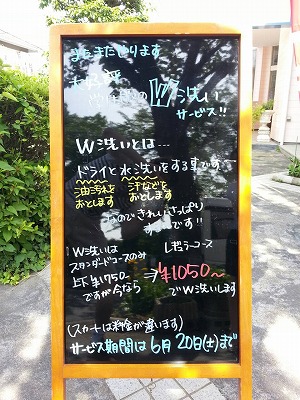 まだまだやります
大好評
のW洗い
サービス!!
W洗いとは...
ドライと水洗いをする事です
油汚れを
おとします
汗などを
おとします
なのできれいさっぱり
です!!
W洗いは
スタンダードコースのみ
上下¥1750-
ですが今なら
レギュラーコース
⇒¥1050~
でW洗いします
(スカートは料金が違います)
サービス期間は6月20日(土)まで